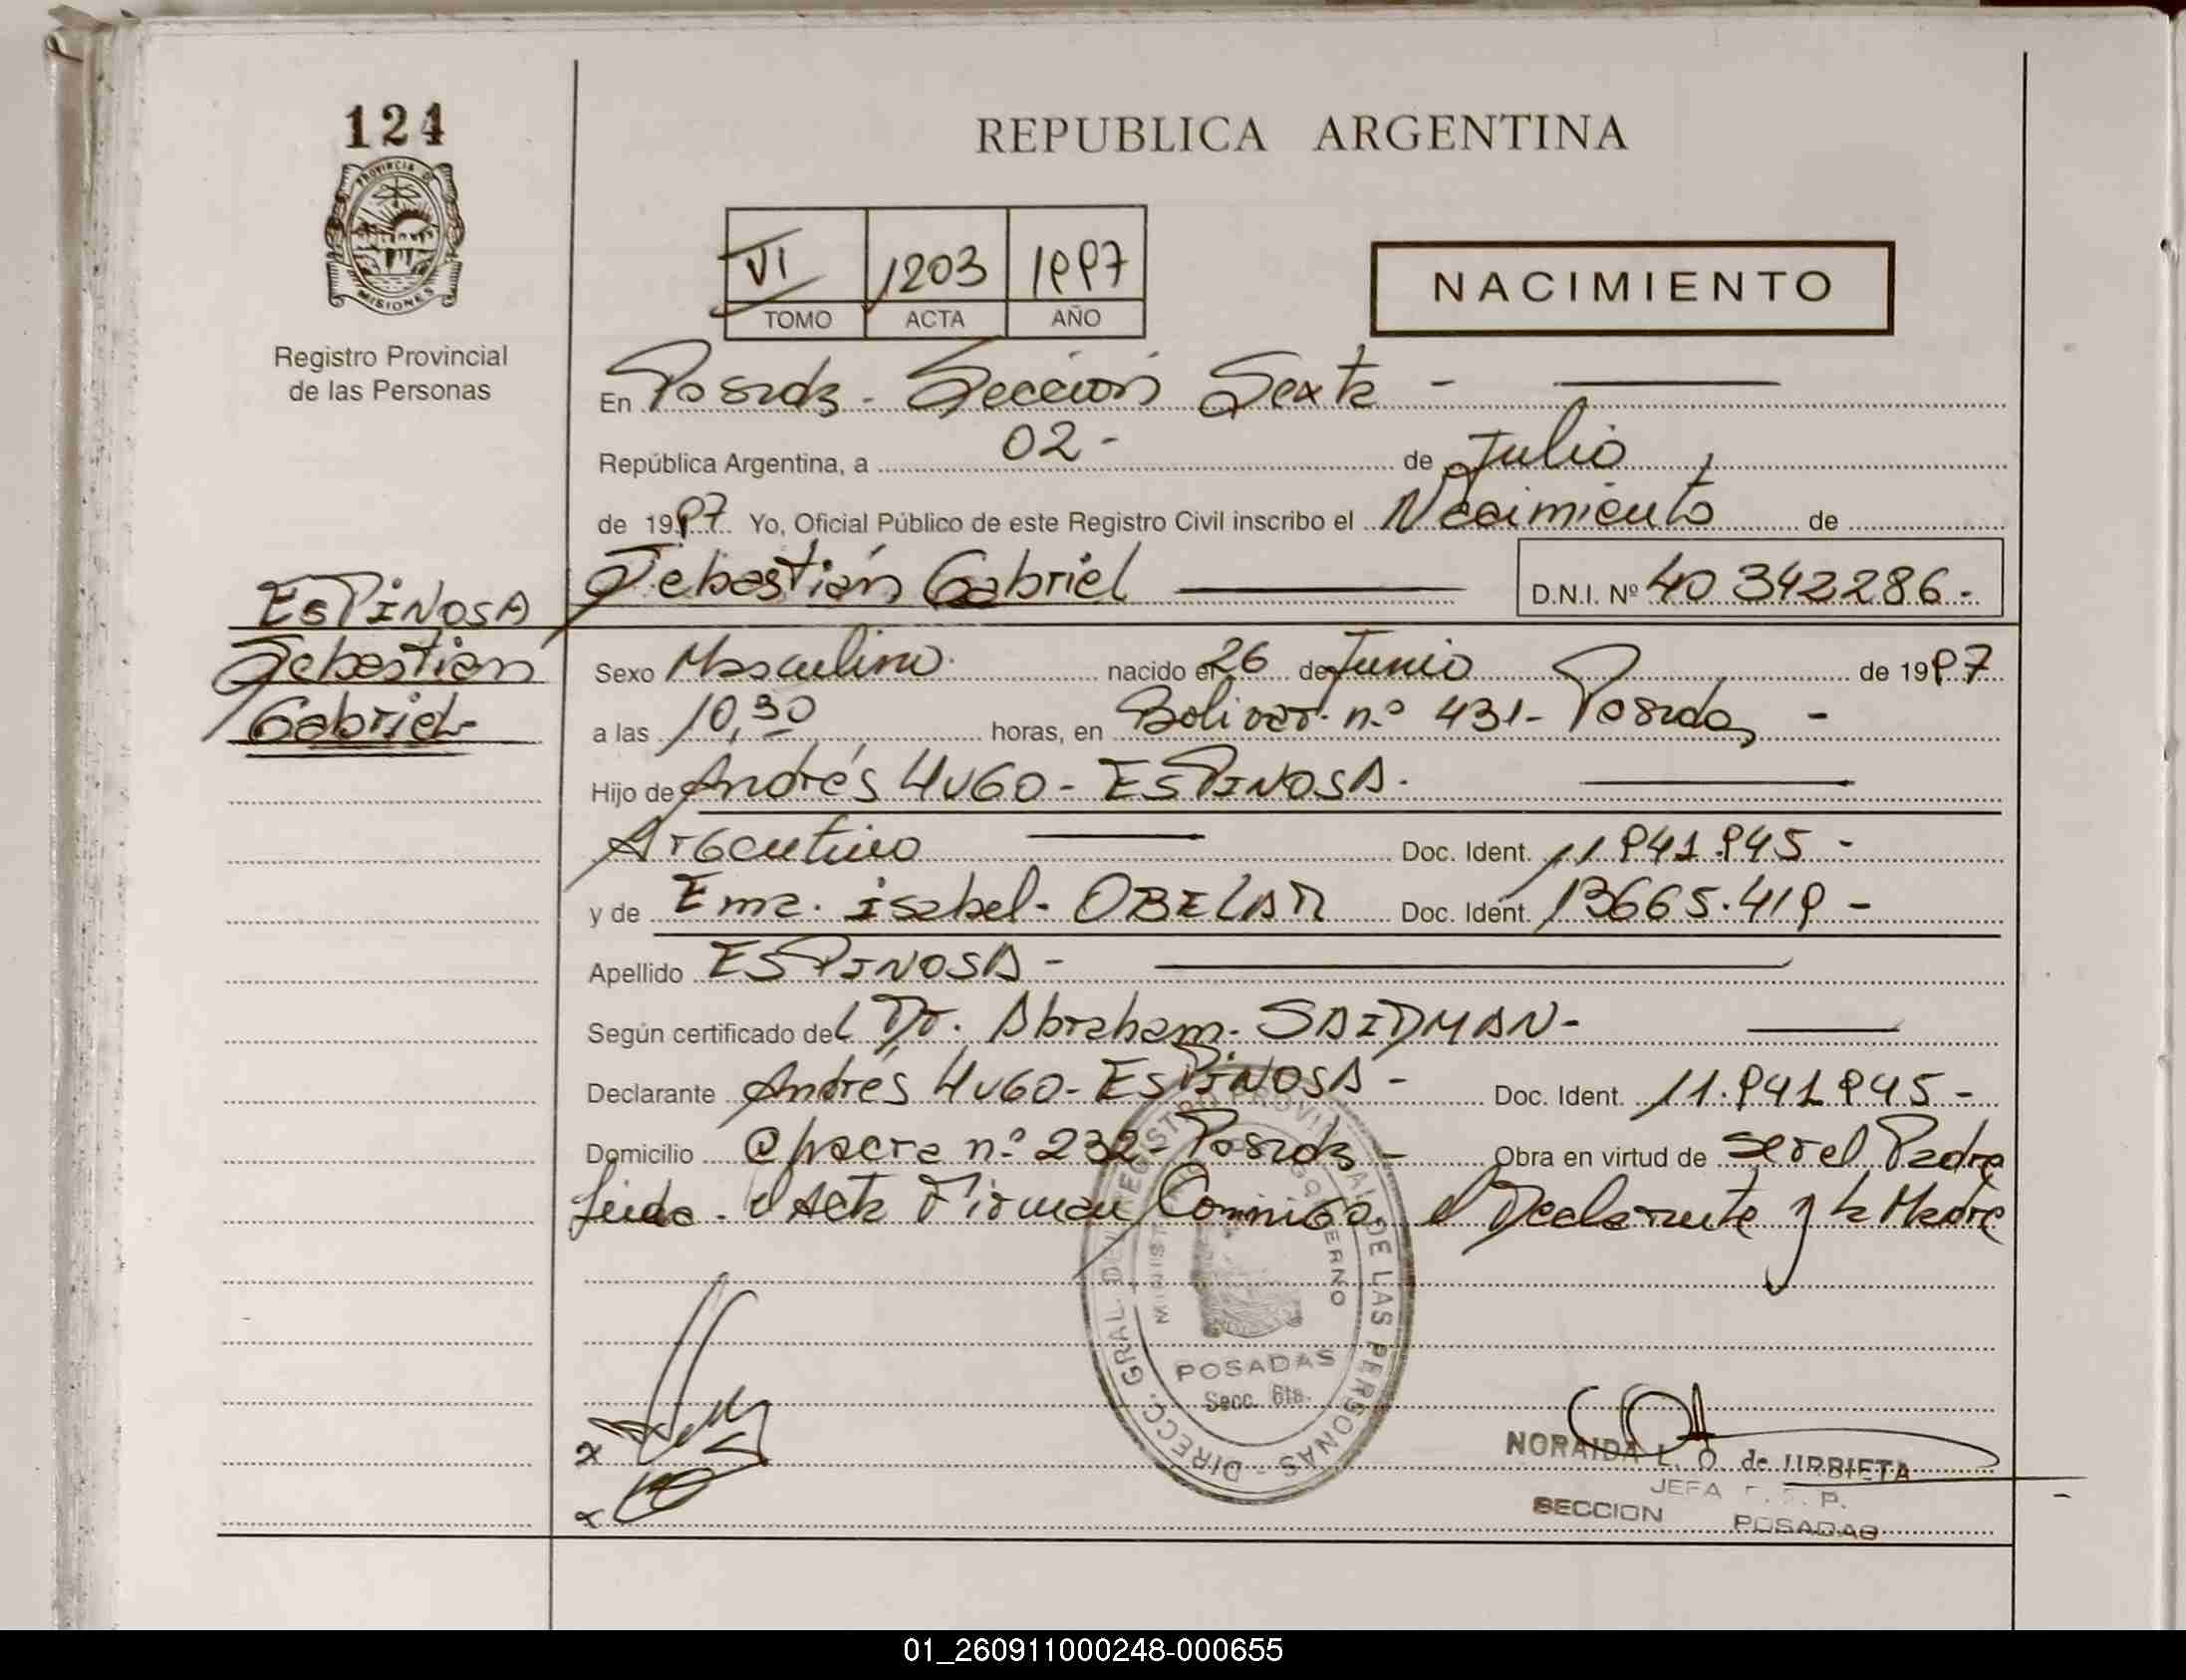 124
PROVINCIA D
MISIONES
Registro Provincial
de las Personas
REPUBLICA ARGENTINA
VI 1203 1997
TOMO ACTA AÑO
NACIMIENTO
En Posadas - Sección Sexta -
República Argentina, a 02- de Julio
de 1997 Yo, Oficial Público de este Registro Civil inscribo el Nacimiento de
Sebastián Gabriel D.N.I. Nº 40 342286.-
ESPINOSA
Sebastian
Gabriel-
Sexo Masculino. nacido el 26 de Junio de 1997
a las 10,30 horas, en Bolivar n.º 431- Posadas -
Hijo de Andrés HUGO - ESPINOSA.
Argentino Doc. Ident. 11.941.945 -
y de Ema. isabel - OBELAR Doc. Ident. 13665.419 -
Apellido ESPINOSA -
Según certificado del Dr. Abraham - SAIDMAN-
Declarante Andrés HUGO - ESPINOSA - Doc. Ident. 11.941.945 -
Domicilio Chacra n.º 232 - Posadas - Obra en virtud de ser el Padre
Leida . el Acta Firman Conmigo, el Declarante y la Madre
DIRECC. GRAL. DEL REGISTRO PROVINCIAL DE LAS PERSONAS -
GOBIERNO
POSADAS
Secc. 6ta.
x
x
NORAIDA L. O. de URBIETA
JEFA P.
SECCION POSADAS
01_260911000248-000655